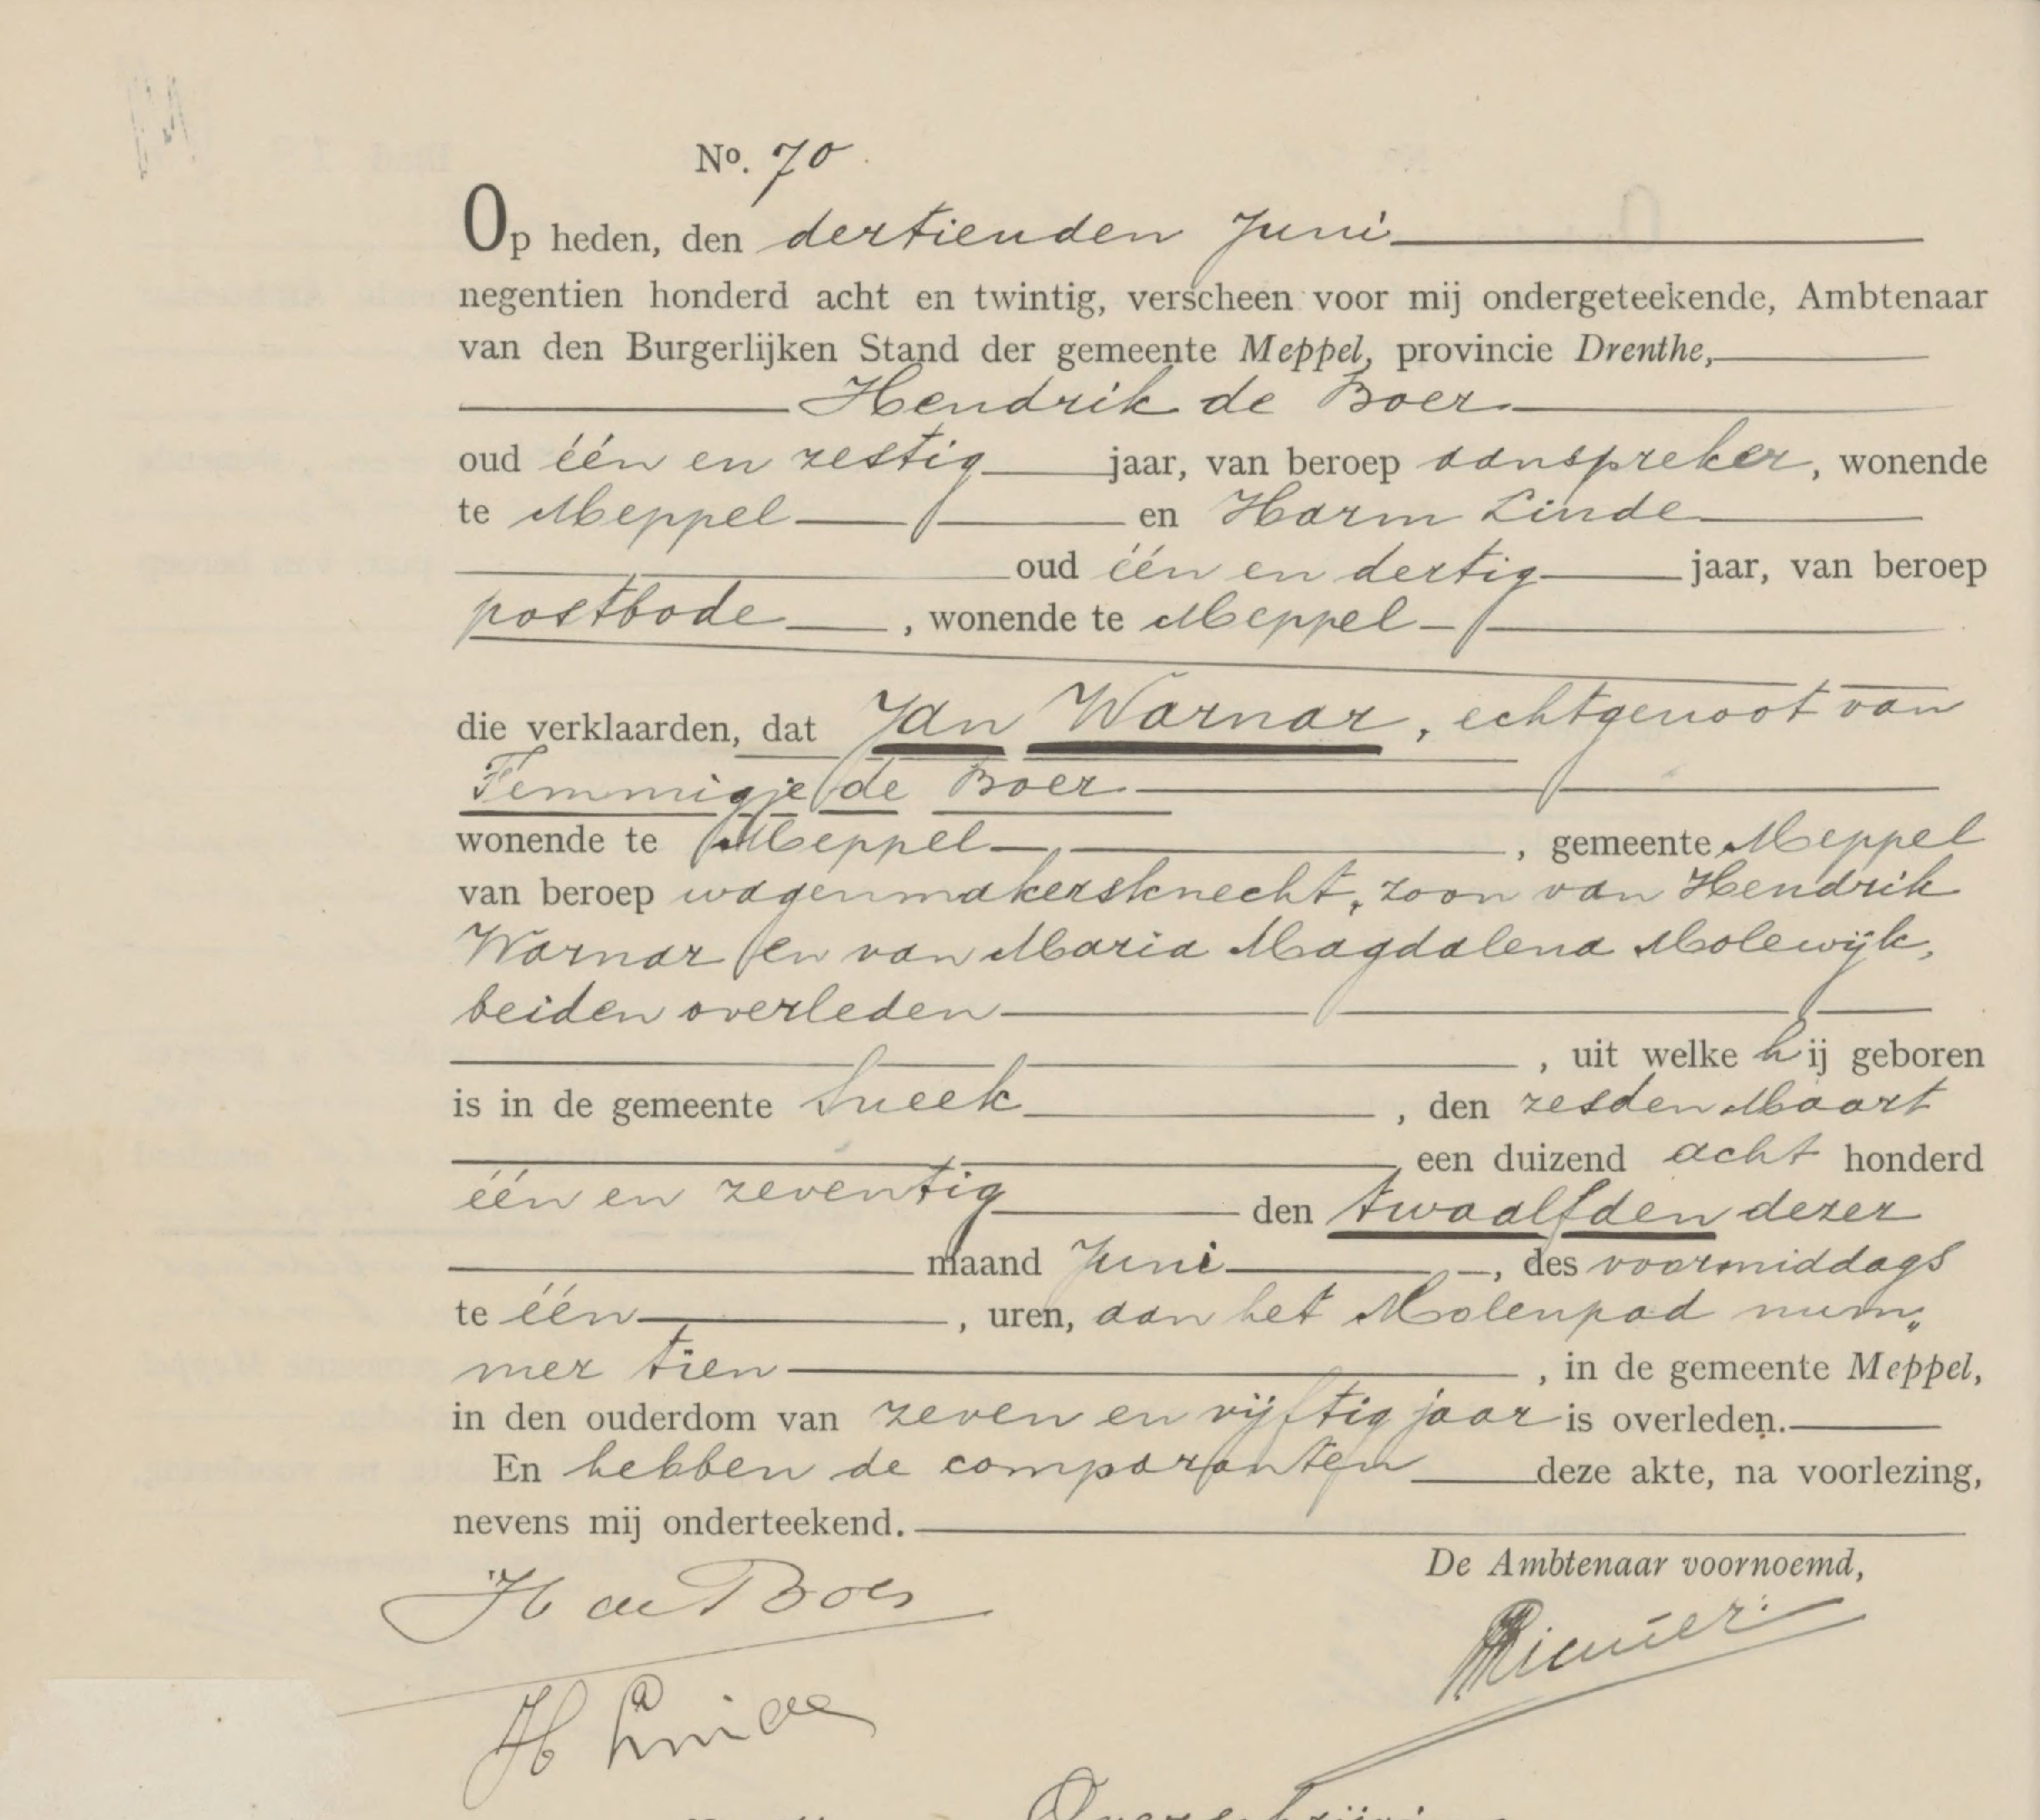 No. 70
Op heden, den dertienden Juni
negentien honderd acht en twintig, verscheen voor mij ondergeteekende, Ambtenaar
van den Burgerlijken Stand der gemeente Meppel, provincie Drenthe,
Hendrik de Boer
oud één en zestig jaar, van beroep aanspreker, wonende
te Meppel en Harm Linde
oud één en dertig jaar, van beroep
postbode, wonende te Meppel
die verklaarden, dat Jan Warnar, echtgenoot van
Femmigje de Boer
wonende te Meppel, gemeente Meppel
van beroep wagenmakersknecht, zoon van Hendrik
Warnar en van Maria Magdalena Molewijk,
beiden overleden
, uit welke hij geboren
is in de gemeente Sneek, den zesden Maart
een duizend acht honderd
één en zeventig den twaalfden dezer
maand Juni, des voormiddags
te één, uren, aan het Molenpad num„
mer tien, in de gemeente Meppel,
in den ouderdom van zeven en vijftig jaar is overleden.
En hebben de comparanten deze akte, na voorlezing,
nevens mij onderteekend.
De Ambtenaar voornoemd,
H de Boer
H Linde